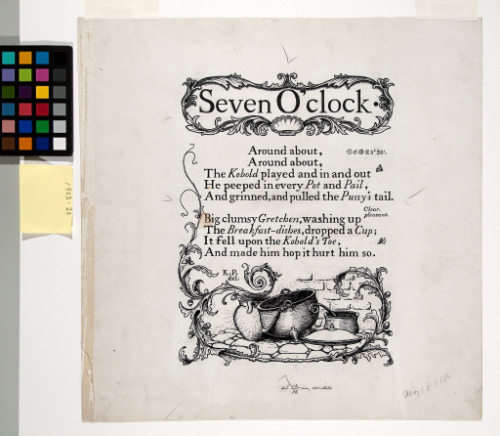 Seven O'clock.
Around about,
Around about,
The Kobold played and in and out
He peeped in every Pot and Pail,
And grinned, and pulled the Pussy's tail.
Clear,
pleasant.
Big clumsy Gretchen, washing up
The Breakfast-dishes, dropped a Cup;
It fell upon the Kobold's Toe,
And made him hop it hurt him so.
K.P.
del.